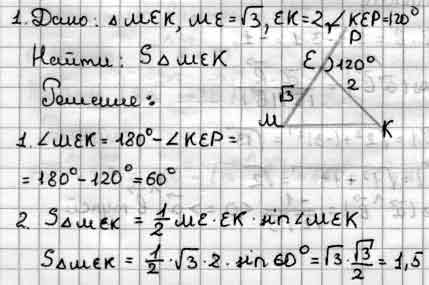 1. Дано: △ MEK, ME=√3, EK=2, ∠KEP=120°
Найти: S△MEK
P
E
120°
2
√3
M
K
Решение:
1. ∠MEK = 180° - ∠KEP =
= 180° - 120° = 60°
2. S△MEK = 1/2 ME · EK · sin∠MEK
S△MEK = 1/2 · √3 · 2 · sin 60° = √3 · √3/2 = 1,5